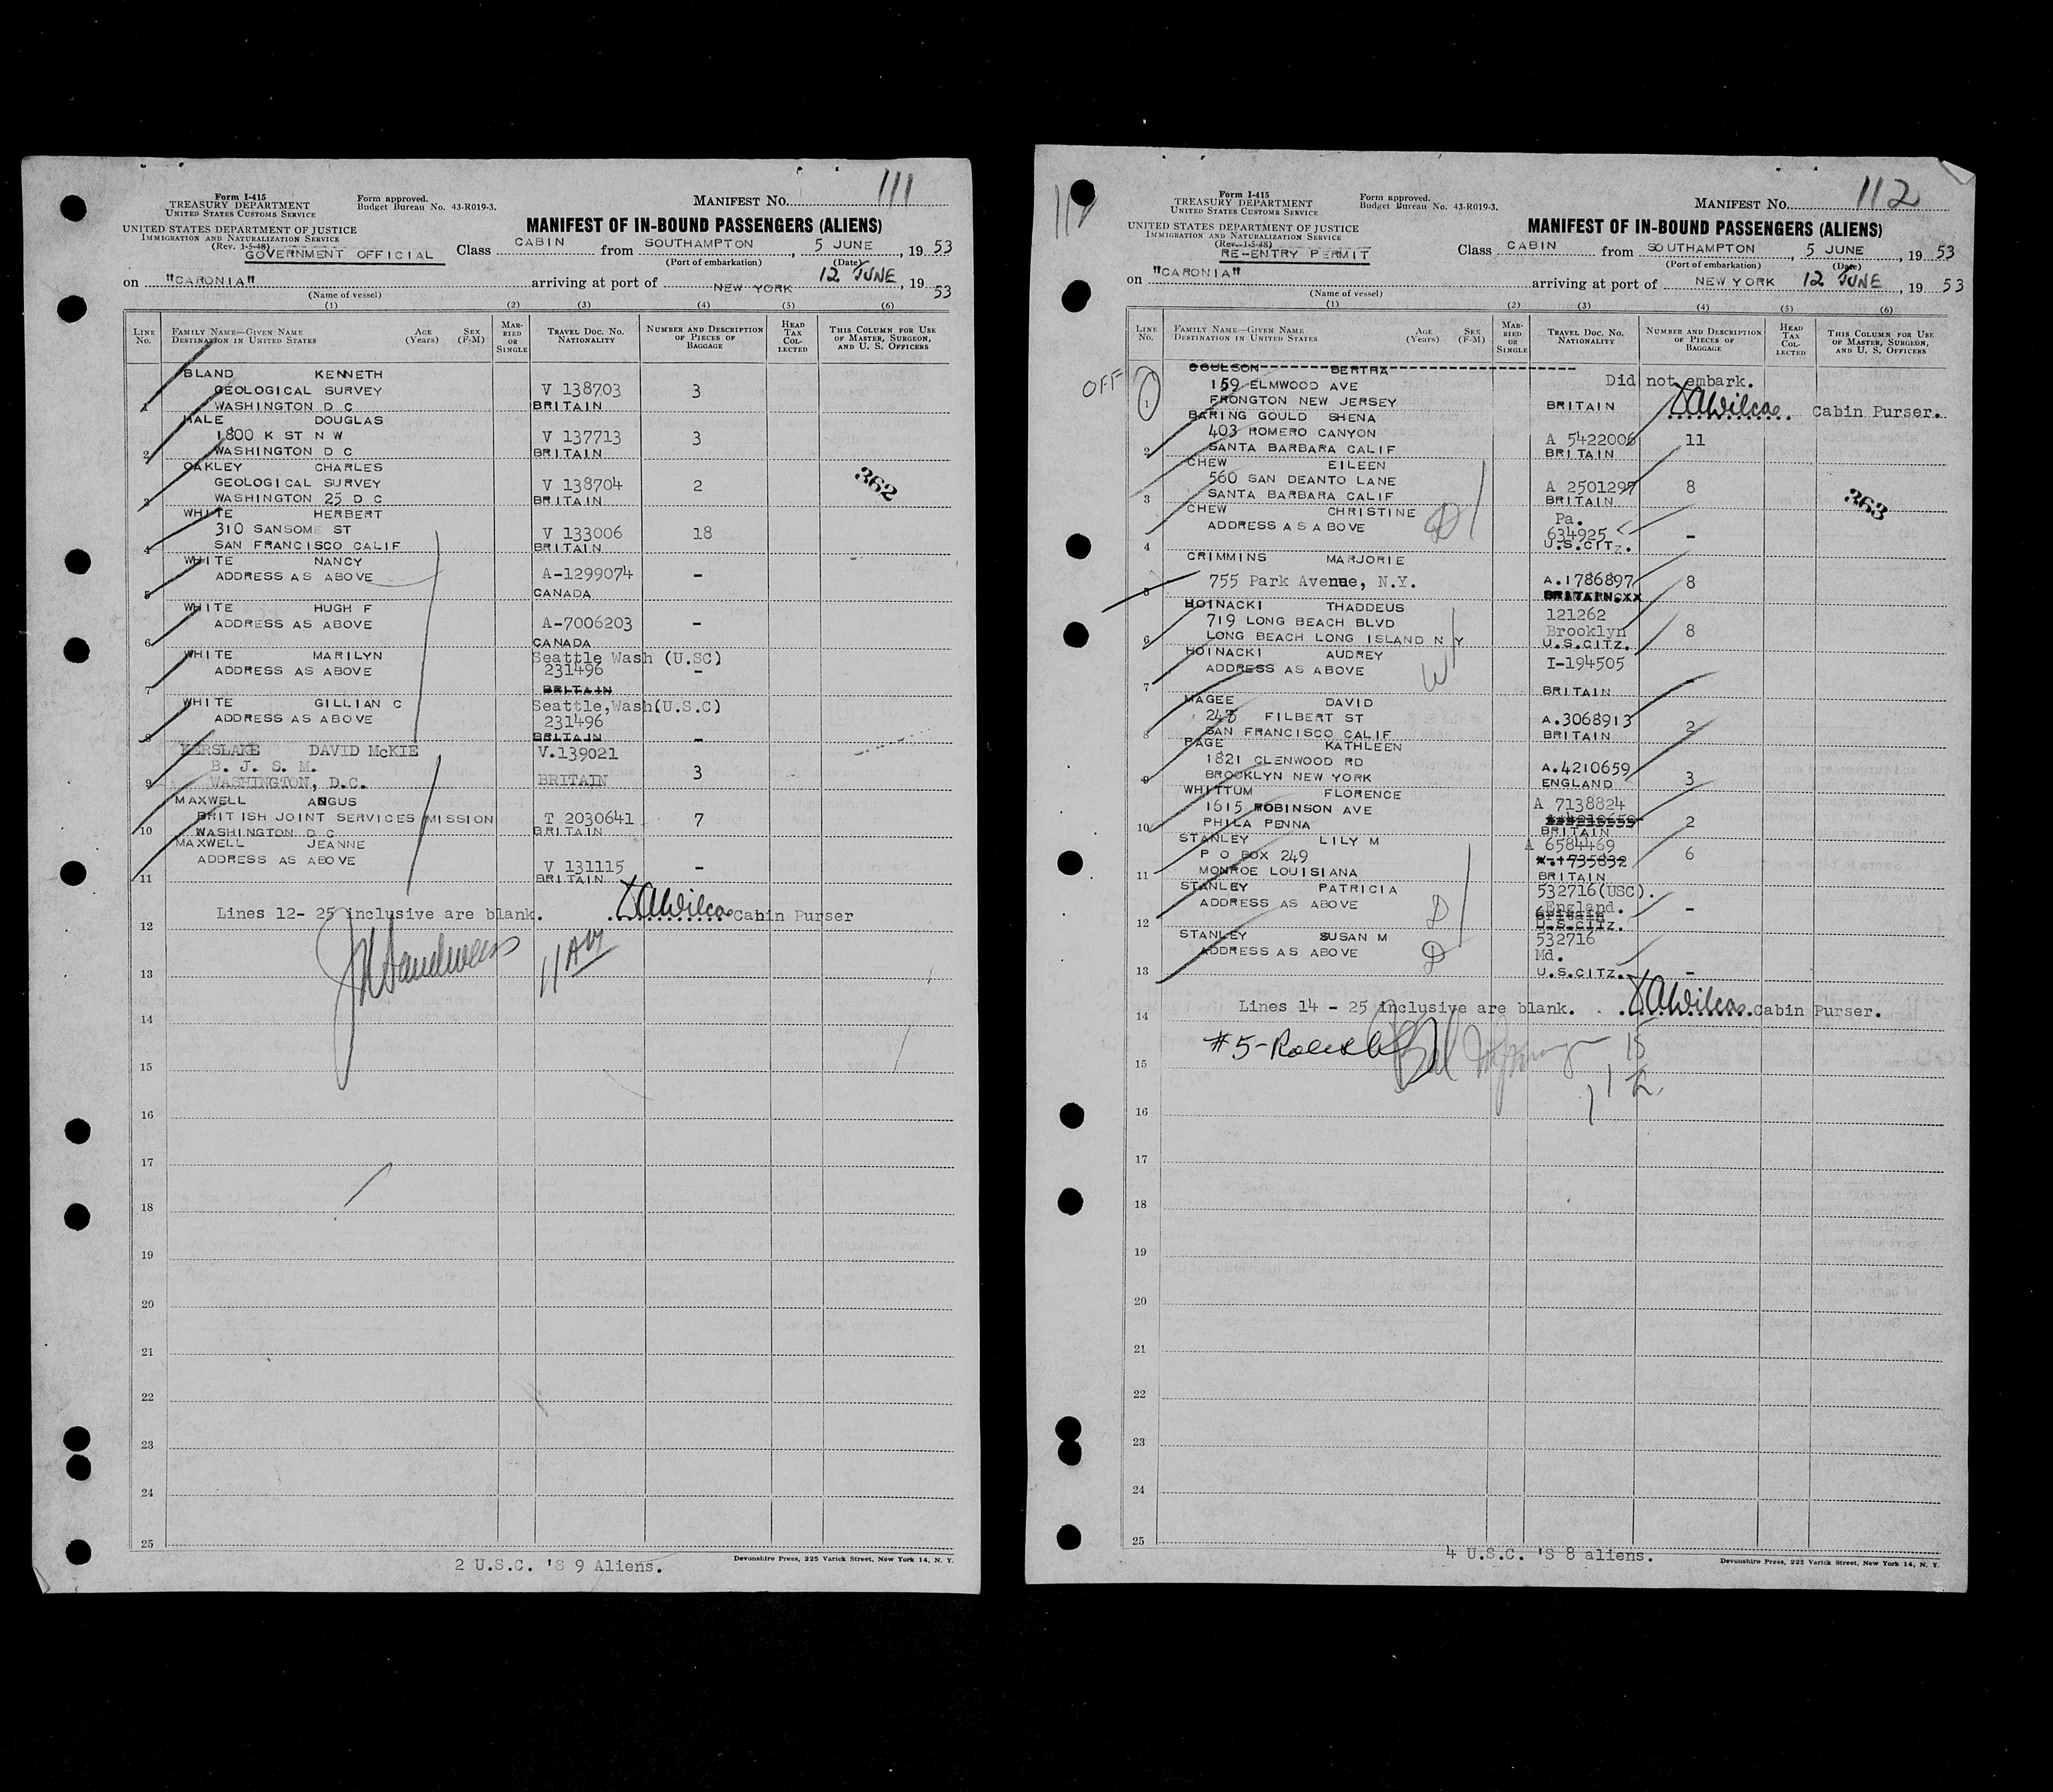 111
Form I-415
TREASURY DEPARTMENT
UNITED STATES CUSTOMS SERVICE
Form approved.
Budget Bureau No. 43-R019-3.
MANIFEST No.
UNITED STATES DEPARTMENT OF JUSTICE
IMMIGRATION AND NATURALIZATION SERVICE
(Rev. 1-5-48)
MANIFEST OF IN-BOUND PASSENGERS (ALIENS)
GOVERNMENT OFFICIAL
Class CABIN from SOUTHAMPTON, 5 JUNE, 19 53
(Port of embarkation) (Date)
on "CARONIA" arriving at port of NEW YORK 12 JUNE, 19 53
(Name of vessel)
(1) (2) (3) (4) (5) (6)
LINE No. FAMILY NAME—GIVEN NAME DESTINATION IN UNITED STATES AGE (Years) SEX (F-M) MARRIED OR SINGLE TRAVEL DOC. NO. NATIONALITY NUMBER AND DESCRIPTION OF PIECES OF BAGGAGE HEAD TAX COLLECTED THIS COLUMN FOR USE OF MASTER, SURGEON, AND U. S. OFFICERS
BLAND KENNETH
GEOLOGICAL SURVEY V 138703 3
1 WASHINGTON D C BRITAIN
HALE DOUGLAS
1800 K ST N W V 137713 3
2 WASHINGTON D C BRITAIN
OAKLEY CHARLES
GEOLOGICAL SURVEY V 138704 2 362
3 WASHINGTON 25 D C BRITAIN
WHITE HERBERT
310 SANSOME ST V 133006 18
4 SAN FRANCISCO CALIF BRITAIN
WHITE NANCY
ADDRESS AS ABOVE A-1299074 -
5 CANADA
WHITE HUGH F
ADDRESS AS ABOVE A-7006203 -
6 CANADA
WHITE MARILYN Seattle Wash (U.SC)
ADDRESS AS ABOVE 231496 -
7 BRITAIN
WHITE GILLIAN C Seattle,Wash(U.S.C)
ADDRESS AS ABOVE 231496
8 BRITAIN -
KERSLAKE DAVID McKIE V.139021
B. J. S. M.
9 WASHINGTON, D.C. BRITAIN 3
MAXWELL ANGUS
BRITISH JOINT SERVICES MISSION T 2030641 7
10 WASHINGTON D C BRITAIN
MAXWELL JEANNE
ADDRESS AS ABOVE V 131115 -
11 BRITAIN
Lines 12- 25 inclusive are blank. Cabin Purser
12
13
14
15
16
17
18
19
20
21
22
23
24
25
2 U.S.C. 'S 9 Aliens.
Devonshire Press, 225 Varick Street, New York 14, N. Y.
112
Form I-415
TREASURY DEPARTMENT
UNITED STATES CUSTOMS SERVICE
Form approved.
Budget Bureau No. 43-R019-3.
MANIFEST No.
UNITED STATES DEPARTMENT OF JUSTICE
IMMIGRATION AND NATURALIZATION SERVICE
(Rev. 1-5-48)
MANIFEST OF IN-BOUND PASSENGERS (ALIENS)
RE-ENTRY PERMIT
Class CABIN from SOUTHAMPTON, 5 JUNE, 19 53
(Port of embarkation) (Date)
on "CARONIA" arriving at port of NEW YORK 12 JUNE, 19 53
(Name of vessel)
(1) (2) (3) (4) (5) (6)
LINE No. FAMILY NAME—GIVEN NAME DESTINATION IN UNITED STATES AGE (Years) SEX (F-M) MARRIED OR SINGLE TRAVEL DOC. NO. NATIONALITY NUMBER AND DESCRIPTION OF PIECES OF BAGGAGE HEAD TAX COLLECTED THIS COLUMN FOR USE OF MASTER, SURGEON, AND U. S. OFFICERS
COULSON BERTHA
OFF 159 ELMWOOD AVE Did not embark.
1 ERONGTON NEW JERSEY BRITAIN Cabin Purser.
BARING GOULD SHENA
403 ROMERO CANYON A 5422006 11
2 SANTA BARBARA CALIF BRITAIN
CHEW EILEEN
560 SAN DEANTO LANE A 2501297 8
3 SANTA BARBARA CALIF BRITAIN 363
CHEW CHRISTINE Pa.
ADDRESS AS ABOVE 634925 -
4 U.S.CITZ.
CRIMMINS MARJORIE
755 Park Avenue, N.Y. A.1786897 8
5
HOINACKI THADDEUS 121262
719 LONG BEACH BLVD Brooklyn 8
6 LONG BEACH LONG ISLAND N Y U.S.CITZ.
HOINACKI AUDREY I-194505
ADDRESS AS ABOVE W
7 BRITAIN -
MAGEE DAVID
FILBERT ST A.3068913 2
8 SAN FRANCISCO CALIF BRITAIN
PAGE KATHLEEN
1821 GLENWOOD RD A.4210659
9 BROOKLYN NEW YORK ENGLAND 3
WHITTUM FLORENCE A 7138824
1615 ROBINSON AVE
10 PHILA PENNA BRITAIN 2
STANLEY LILY M A 6584469
P O BOX 249 A-1735832 6
11 MONROE LOUISIANA BRITAIN
STANLEY PATRICIA 532716(USC).
ADDRESS AS ABOVE D England. -
12 U.S.CITZ.
STANLEY SUSAN M 532716
ADDRESS AS ABOVE D Md.
13 U.S.CITZ. -
Lines 14 - 25 inclusive are blank. Cabin Purser.
14
15
16
17
18
19
20
21
22
23
24
25
4 U.S.C. 'S 8 aliens.
Devonshire Press, 225 Varick Street, New York 14, N. Y.